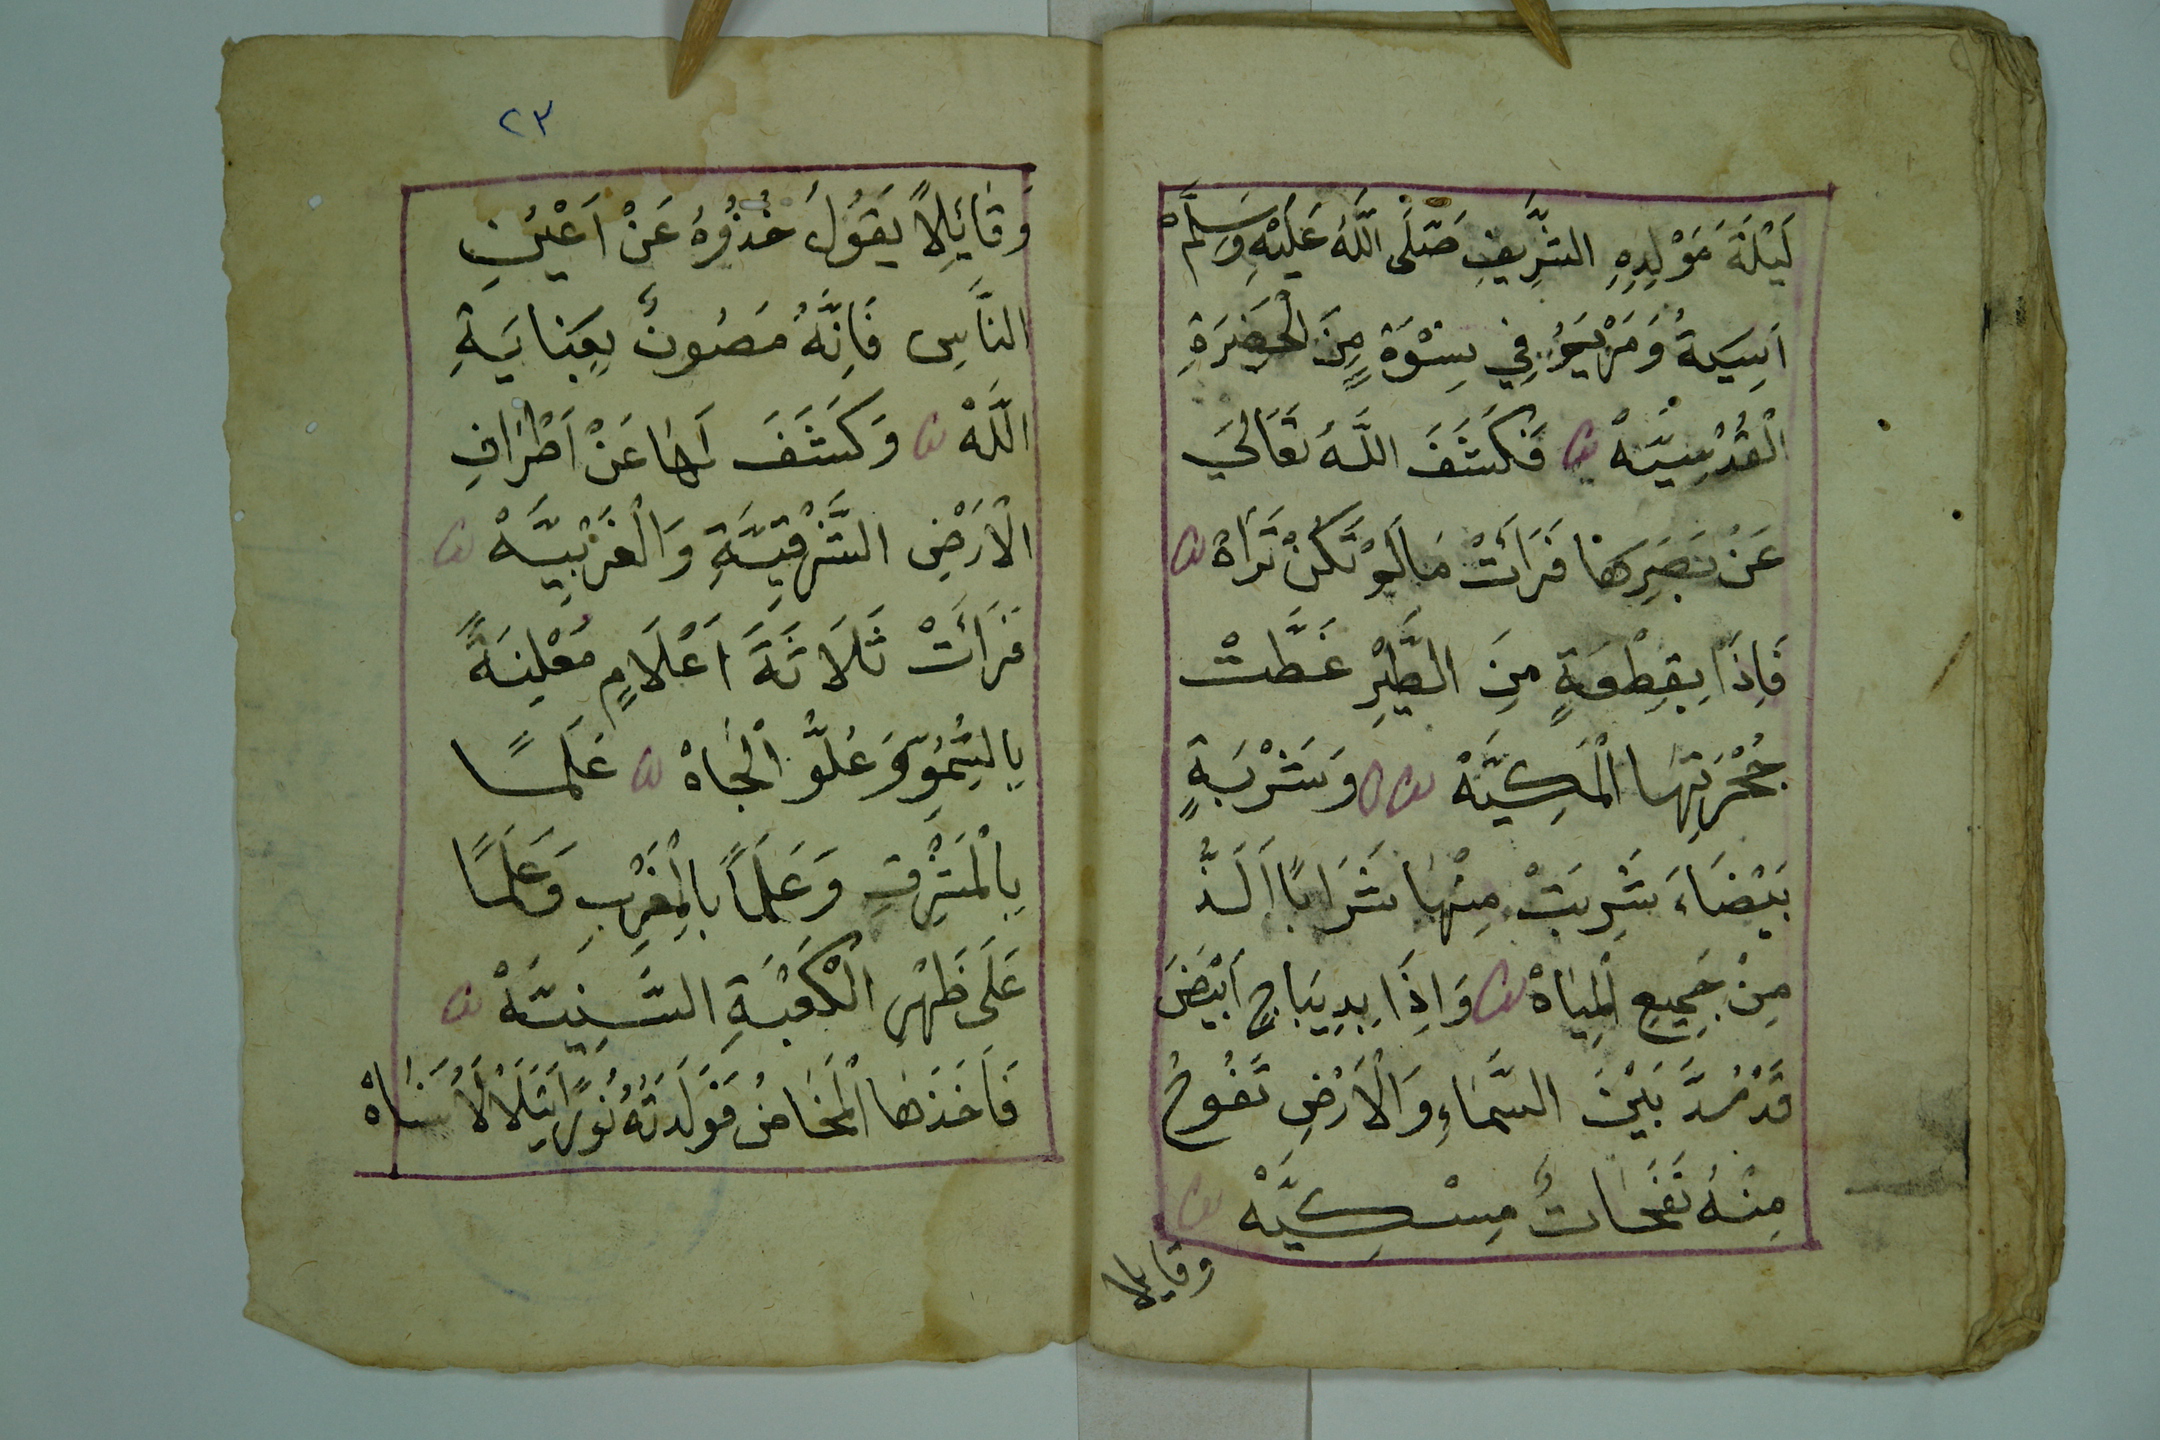 لَيْلَةَ مَوْلِدِهِ الشَّرِيفِ صَلَّى اللَّهُ عَلَيْهِ وَسَلَّمَ
اَسِيَةُ وَمَرْيَمُ فِي نِسْوَةٍ مِنَ الْحَضِيرَةِ
الْقُدْسِيَّهْ فَكَشَفَ اللَّهُ تَعَالَى
عَنْ بَصَرِهَا فَرَأَتْ مَالَمْ تَكُنْ تَرَاهْ
فَاِذَا بِقِطْعَةٍ مِنَ الطَّيْرِ غَطَّتْ
حُجْرَتِهَا الْمَكِّيَّهْ وَشَرْبَةٍ
بَيْضَاءَ شَرِبَتْ مِنْهَا شَرَابًا اَلَذُّ
مِنْ جَمِيعِ الْمِيَاهْ وَاِذَا بِدِيبَاجٍ اَبْيَضَ
قَدْ مُدَّ بَيْنَ السَّمَاءِ وَالْاَرْضِ تَفُوحُ
مِنْهُ نَفَحَاتٌ مِسْكِيَّهْ
وقايلا
٢٣
وَقَائِلًا يَقُولُ خُذُوهُ عَنْ اَعْيُنِ
النَّاسِ فَاِنَّهُ مَصُونٌ بِعِنَايَةِ
اللَّهْ وَكَشَفَ لَهَا عَنْ اَطْرَافِ
الْاَرْضِ الشَّرْقِيَّةِ وَالْغَرْبِيَّهْ
فَرَأَتْ ثَلَاثَةَ اَعْلَامٍ مُعْلِنَةً
بِالسُّمُوِّ وَعُلُوِّ الْجَاهْ عَلَمًا
بِالْمَشْرِقِ وَعَلَمًا بِالْمَغْرِبِ وَعَلَمًا
عَلَى ظَهْرِ الْكَعْبَةِ السَّنِيَّهْ
فَاَخَذَهَا الْمَخَاضُ فَوَلَدَتْهُ نُورًا يَتَلَاْلَاُ سَنَاهْ